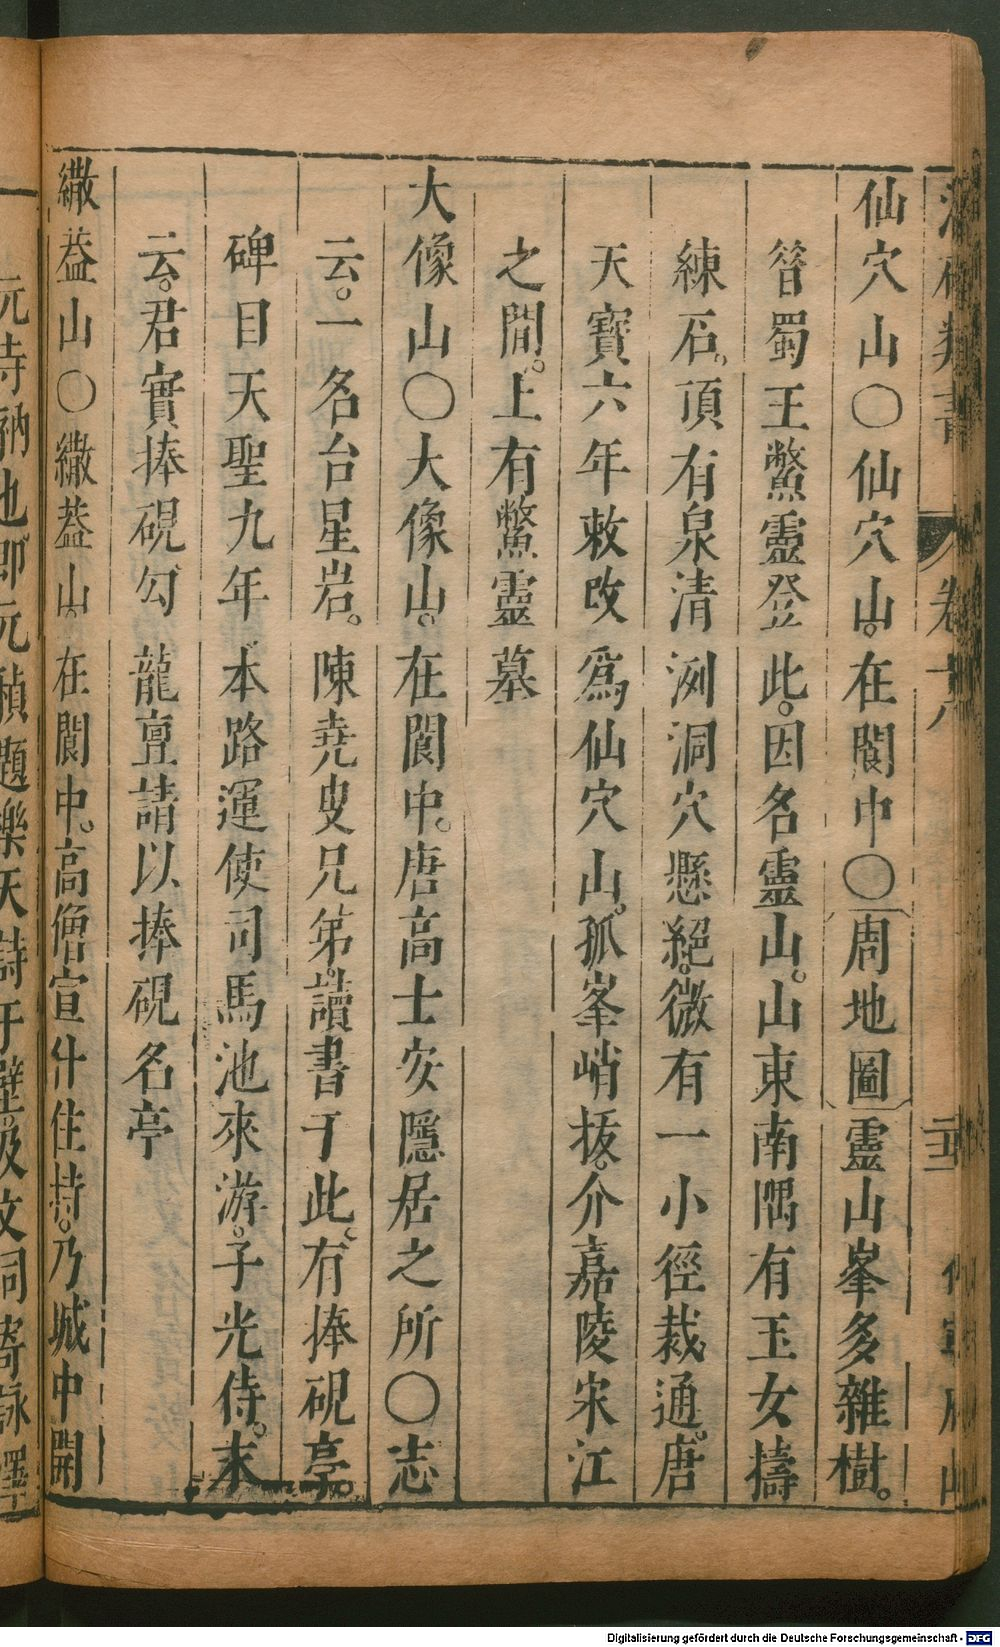 卷十八
仙穴山〇仙穴山。在閬中〇周地圖靈山峯多雜樹。
昔蜀王鱉靈登此。因名靈山。山東南隅有玉女擣
練石。頂有泉清洌洞穴懸絕。微有一小徑裁通。唐
天寶六年敕改爲仙穴山。孤峯峭拔。介嘉陵宋江
之間。上有鱉靈墓
大像山〇大像山。在閬中。唐高士安隱居之所〇志
云。一名台星岩。陳堯叟兄弟。讀書于此。有捧硯亭。
碑目天聖九年本路運使司馬池來游。子光侍。末
云。君實捧硯勾龍亶請以捧硯名亭
繖蓋山〇繖蓋山。在閬中。高僧宣什住持。乃城中開
元寺衲也即元稹題樂天詩于壁。及文同寄詠
Digitalisierung gefördert durch die Deutsche Forschungsgemeinschaft - DFG